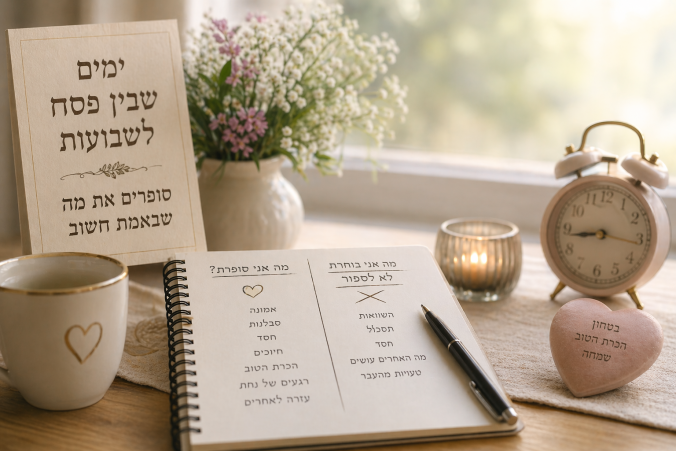 ימים
שבין פסח
לשבועות
סופרים את מה
שבאמת חשוב
מה אני סופרת?
אמונה
סבלנות
חסד
חיוכים
הכרת הטוב
רגעים של נחת
עזרה לאחרים
מה אני בוחרת
לא לספור
השוואות
תסכול
חסד
מה האחרים עושים
טעויות מהעבר
12
1
2
3
4
5
6
7
8
9
10
11
בטחון
הכרת הטוב
שמחה